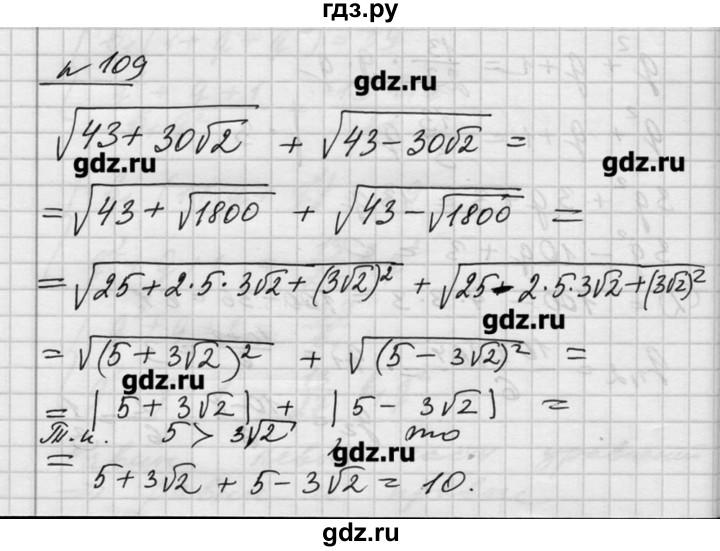 гдз.ру
№ 109
gdz.ru
√(43 + 30√2) + √(43 - 30√2) =
gdz.ru
gdz.ru
= √(43 + √1800) + √(43 - √1800) =
= √(25 + 2·5·3√2 + (3√2)²) + √(25 - 2·5·3√2 + (3√2)²)
gdz.ru
= √((5 + 3√2)²) + √((5 - 3√2)²) =
gdz.ru
= |5 + 3√2| + |5 - 3√2| =
Т.к. 5 > 3√2, то
gdz.ru
= 5 + 3√2 + 5 - 3√2 = 10.
gdz.ru